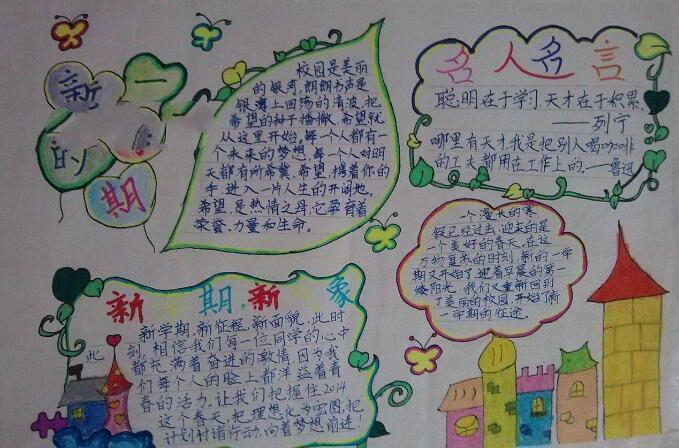 一
新
的
期
校园是美丽
的银河,朗朗书声是
银海上回荡的清波,把
希望的种子播撒,希望就
从这里开始,每一个人都有一
个未来的梦想,每一个人对明
天都有所希冀,希望,携着你的
手,进入一片人生的开阔地。
希望,是热情之母,它孕育着
荣誉、力量和生命。
名人名言
聪明在于学习,天才在于积累,
——列宁
哪里有天才,我是把别人喝咖啡
的工夫都用在工作上的.——鲁迅
一个漫长的寒
假已经过去,迎来的是
一个美好的春天。在这
万物复苏的时刻,新的一学
期又开始了,迎着早晨的第一
缕阳光,我们又重新回到
了美丽的校园,开始了新
一学期的征途。
新 期新 象
新学期,新征程,新面貌,此时
此
刻,相信我们每一位同学的心中
都充满着奋进的激情,因为我
们每个人的脸上都洋溢着青
春的活力,让我们把握住2014
这个春天,把理想化为宏图,把
计划付诸行动,向着梦想前进!